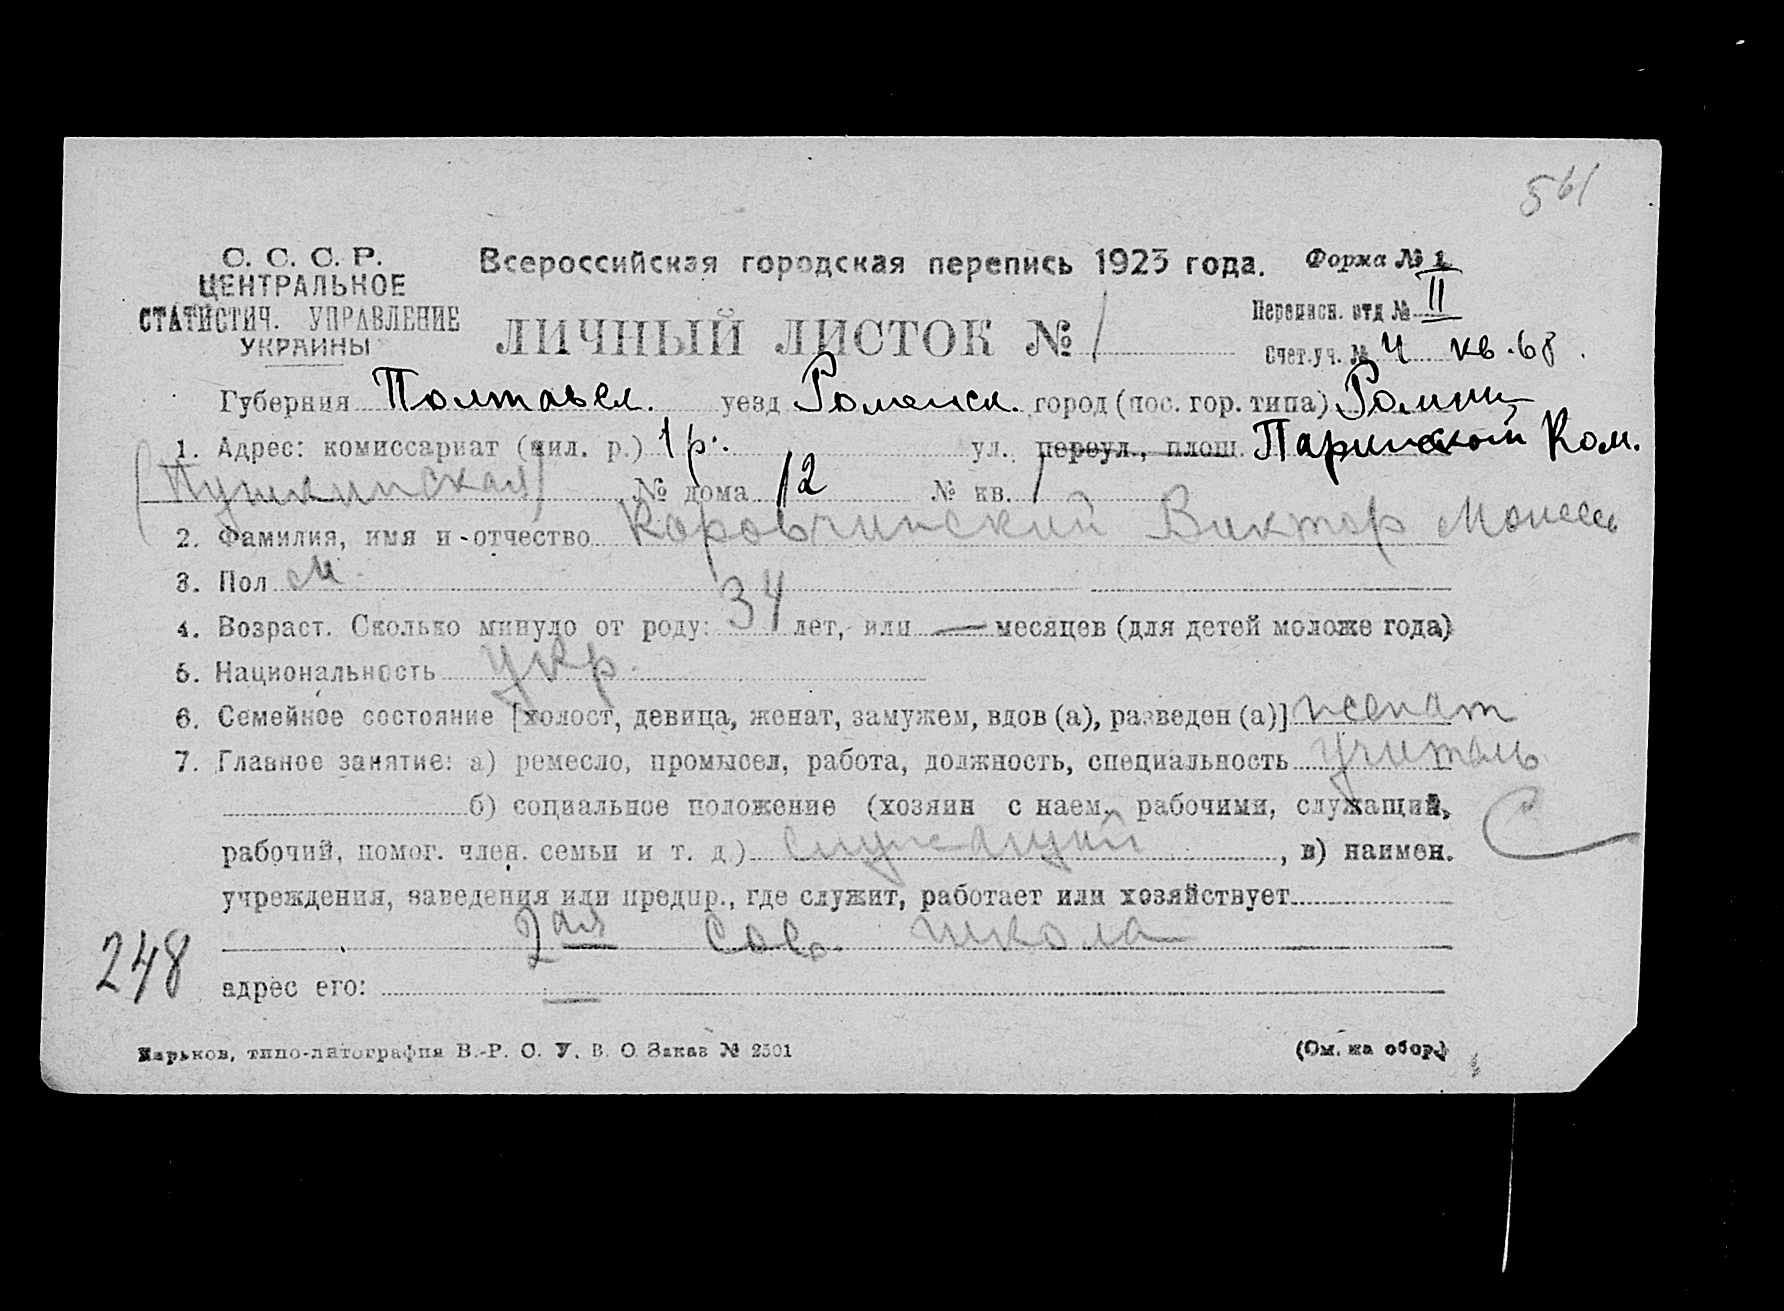 561
С. С. С. Р.
ЦЕНТРАЛЬНОЕ
СТАТИСТИЧ. УПРАВЛЕНИЕ
УКРАИНЫ
Всероссийская городская перепись 1923 года.
Форма № 1
ЛИЧНЫЙ ЛИСТОК № 1
Переписн. отд № II
Счет.уч. № 4 кв. 68.
Губерния Полтавск. уезд Роменск. город (пос. гор. типа) Ромны
1. Адрес: комиссариат (мил. р.) 1 р. ул. переул., площ. Парижской Ком.
(Пушкинская) № дома 12 № кв. 1
2. Фамилия, имя и отчество Коровчинский Виктор Моисеев
3. Пол м
4. Возраст. Сколько минуло от роду: 34 лет, или — месяцев (для детей моложе года)
5. Национальность укр.
6. Семейное состояние [холост, девица, женат, замужем, вдов (а), разведен (а)] женат
7. Главное занятие: а) ремесло, промысел, работа, должность, специальность учитель
б) социальное положение (хозяин с наем. рабочими, служащий,
рабочий, помог. член. семьи и т. д.) служащий, в) наимен.
учреждения, заведения или предпр., где служит, работает или хозяйствует
2ая сов. школа
248
адрес его: —
Харьков, типо-литография В.-Р. С. У. В. О. Заказ № 2501
(См. на обор.)